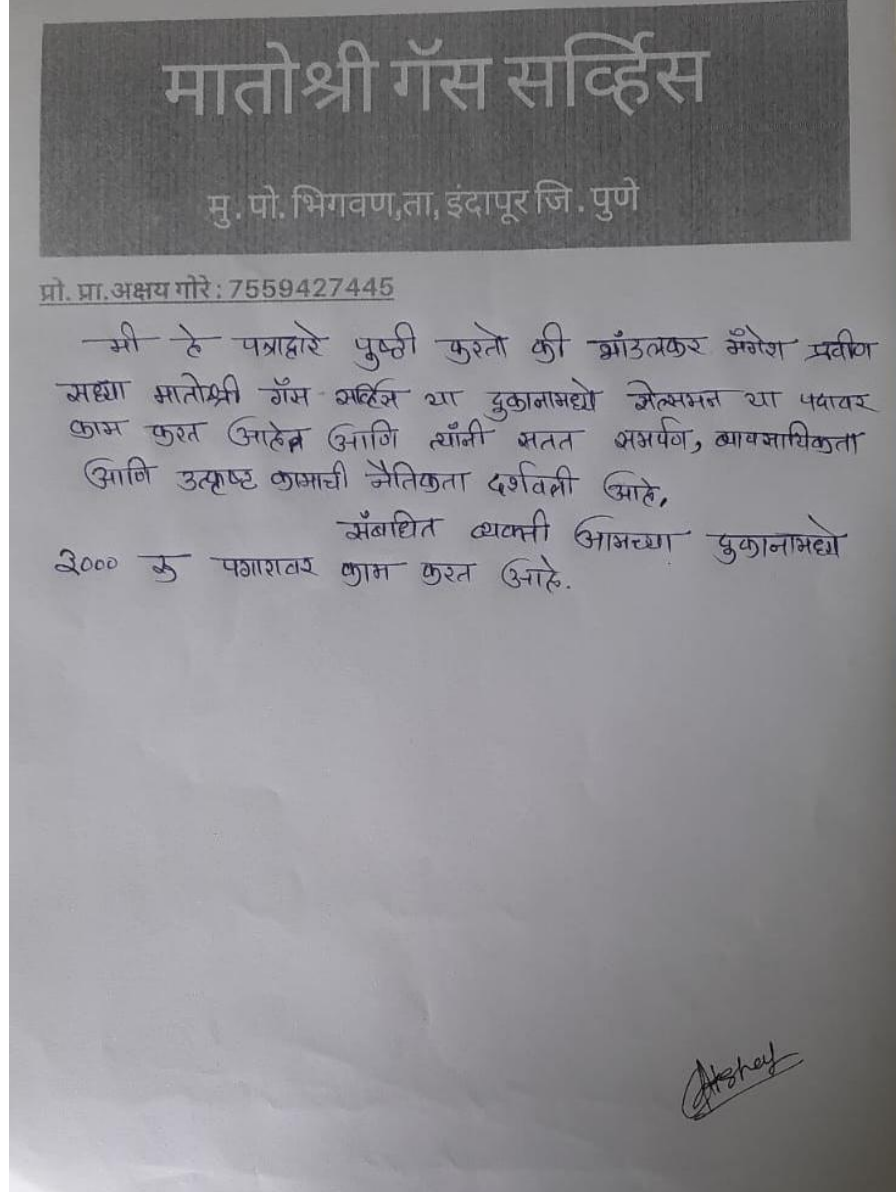 मातोश्री गॅस सर्व्हिस
मु. पो. भिगवण,ता, इंदापूर जि. पुणे
प्रो. प्रा.अक्षय गोरे : 7559427445
मी हे पत्राद्वारे पुष्ठी करतो की भाँउलकर मँगेश प्रवीण
सध्या मातोश्री गॅस सर्व्हिस या दुकानामध्ये सेल्समन या पदावर
काम करत आहेत आणि त्याँनी सतत समर्पण, व्यावसायिकता
आणि उत्कृष्ट कामाची नैतिकता दर्शवली आहे,
सँबधित व्यक्ती आमच्या दुकानामध्ये
३००० रु पगारावर काम करत आहे.
Akshay